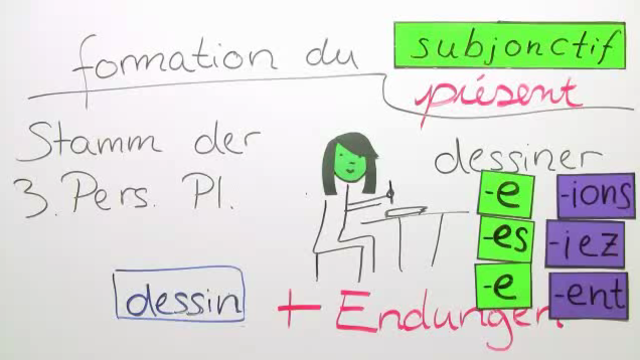 formation du subjonctif
présent
Stamm der
3. Pers. Pl.
dessiner
-e -ions
-es -iez
-e -ent
dessin + Endungen